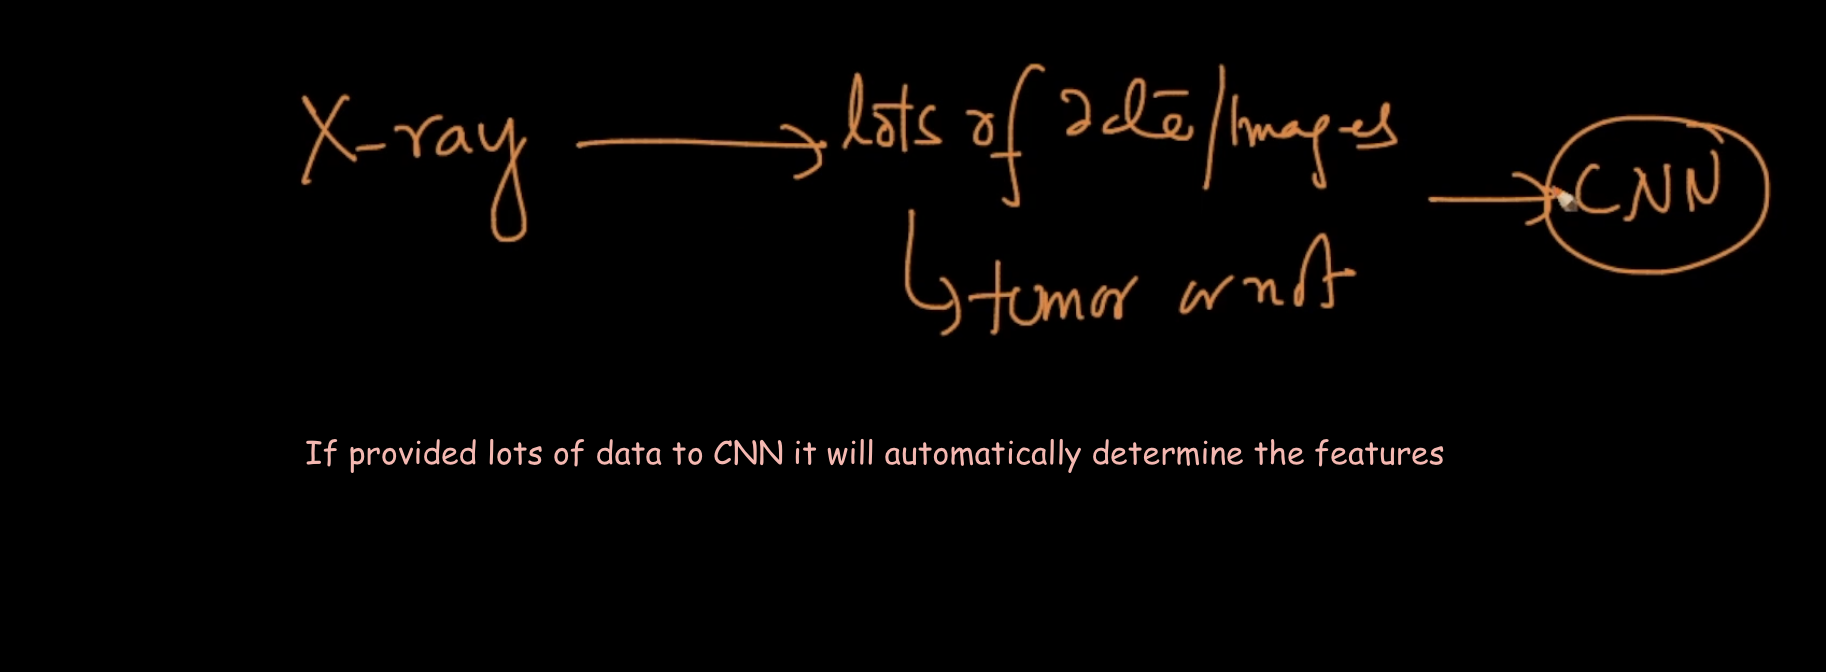 X-ray → lots of data/Images → CNN
↳ tumor or not
If provided lots of data to CNN it will automatically determine the features